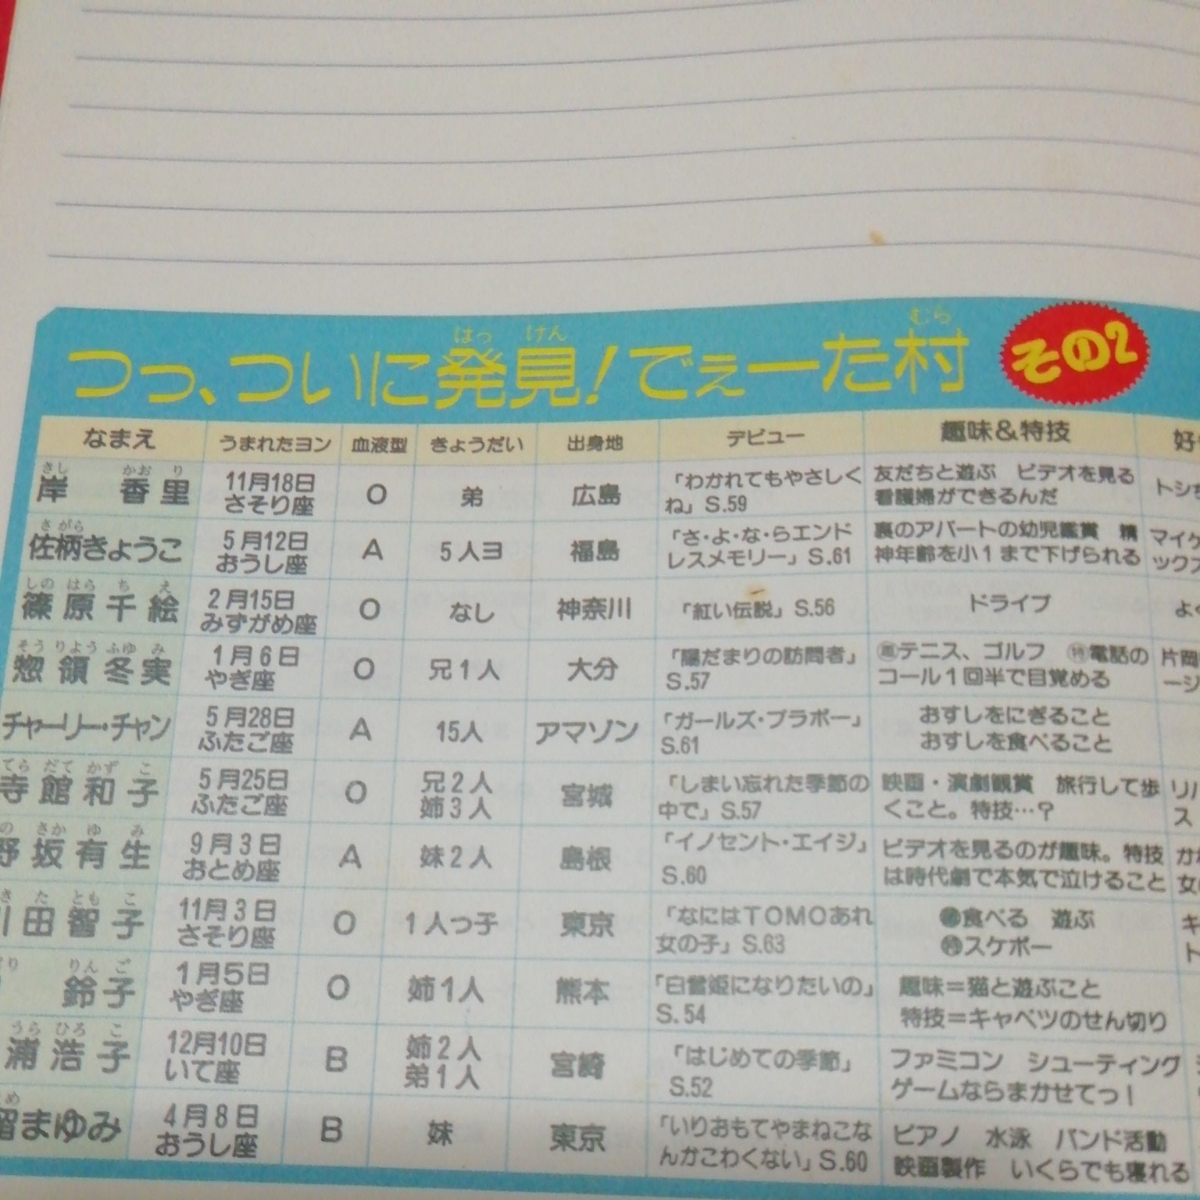 つっ、ついに発見！でぇーた村 その2
なまえ うまれたヨン 血液型 きょうだい 出身地 デビュー 趣味＆特技 好
岸 香里 11月18日 さそり座 O 弟 広島 「わかれてもやさしくね」S.59 友だちと遊ぶ ビデオを見る 看護婦ができるんだ トシ
佐柄きょうこ 5月12日 おうし座 A 5人ヨ 福島 「さ・よ・な・らエンドレスメモリー」S.61 裏のアパートの幼児鑑賞 精神年齢を小1まで下げられる マイケ ックス
篠原千絵 2月15日 みずがめ座 O なし 神奈川 「紅い伝説」S.56 ドライブ よく
惣領冬実 1月6日 やぎ座 O 兄1人 大分 「陽だまりの訪問者」S.57 テニス、ゴルフ ㊕電話のコール1回半で目覚める 片岡 ージ
チャーリー・チャン 5月28日 ふたご座 A 15人 アマゾン 「ガールズ・ブラボー」S.61 おすしをにぎること おすしを食べること
寺館和子 5月25日 ふたご座 O 兄2人 姉3人 宮城 「しまい忘れた季節の中で」S.57 映画・演劇観賞 旅行して歩くこと。特技…？ リバ ス
野坂有生 9月3日 おとめ座 A 妹2人 島根 「イノセント・エイジ」S.60 ビデオを見るのが趣味。特技は時代劇で本気で泣けること 女の
川田智子 11月3日 さそり座 O 1人っ子 東京 「なにはTOMOあれ女の子」S.63 食べる 遊ぶ スケボー キ ト
鈴子 1月5日 やぎ座 O 姉1人 熊本 「白雪姫になりたいの」S.54 趣味＝猫と遊ぶこと 特技＝キャベツのせん切り
浦浩子 12月10日 いて座 B 姉2人 弟1人 宮崎 「はじめての季節」S.52 ファミコン シューティングゲームならまかせてっ！
留まゆみ 4月8日 おうし座 B 妹 東京 「いりおもてやまねこなんかこわくない」S.60 ピアノ 水泳 バンド活動 映画製作 いくらでも寝れる